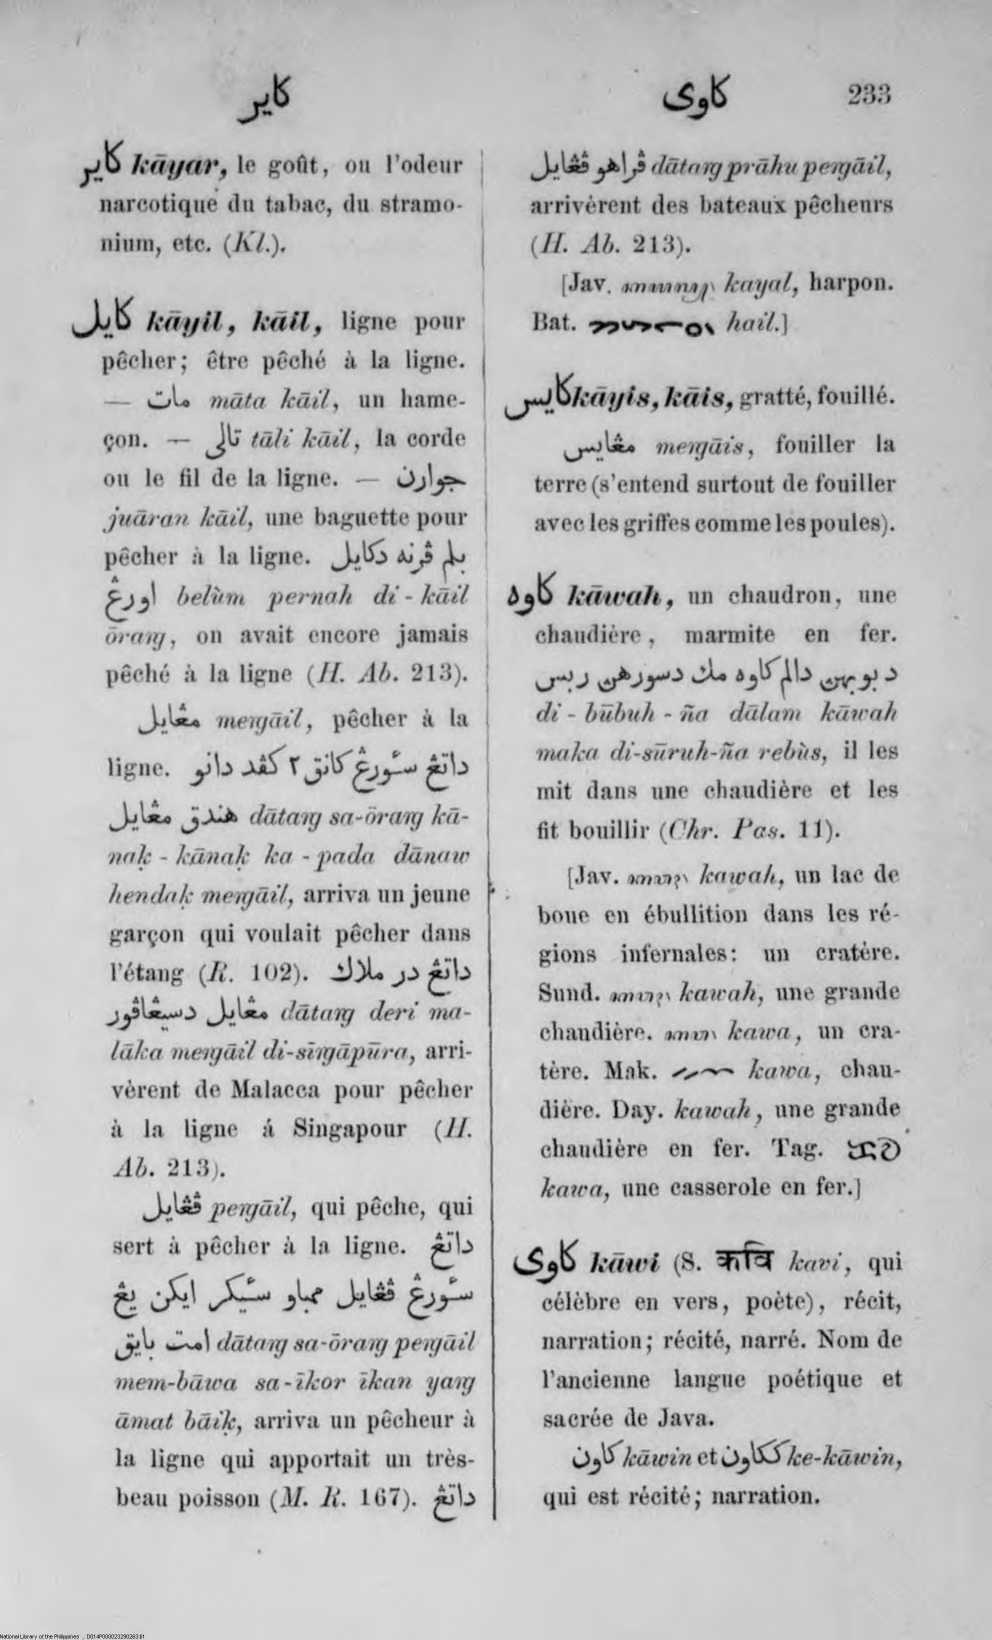 كاير
كاوى 233
كاير kāyar, le goût, ou l'odeur
narcotique du tabac, du stramo-
nium, etc. (Kl.).
كايل kāyil, kāil, ligne pour
pêcher; être pêché à la ligne.
— مات māta kāil, un hame-
çon. — تالى tāli kāil, la corde
ou le fil de la ligne. — جوارن
juāran kāil, une baguette pour
pêcher à la ligne. بلم ڤرنه دكايل
اورڠ belùm pernah di-kāil
ōraŋg, on avait encore jamais
pêché à la ligne (H. Ab. 213).
مڠايل meŋgāil, pêcher à la
ligne. داتڠ سئورڠ كانق٢ كڤد دانو
هندق مڠايل dātaŋg sa-ōraŋg kā-
naḳ-kānaḳ ka-pada dānaw
hendaḳ meŋgāil, arriva un jeune
garçon qui voulait pêcher dans
l'étang (R. 102). داتڠ در ملاك
مڠايل دسيڠاڤور dātaŋg deri ma-
lāka meŋgāil di-sīŋgāpūra, arri-
vèrent de Malacca pour pêcher
à la ligne á Singapour (H.
Ab. 213).
ڤڠايل peŋgāil, qui pêche, qui
sert à pêcher à la ligne. داتڠ
سئورڠ ڤڠايل ممباو سئيكر ايكن يڠ
امت بايق dātaŋg sa-ōraŋg peŋgāil
mem-bāwa sa-īkor īkan yaŋg
āmat bāiḳ, arriva un pêcheur à
la ligne qui apportait un très-
beau poisson (M. R. 167). داتڠ
ڤراهو ڤڠايل dātaŋg prāhu peŋgāil,
arrivèrent des bateaux pêcheurs
(H. Ab. 213).
[Jav. kayal, harpon.
Bat. hail.]
كايس kāyis, kāis, gratté, fouillé.
مڠايس meŋgāis, fouiller la
terre (s'entend surtout de fouiller
avec les griffes comme les poules).
كاوه kāwah, un chaudron, une
chaudière, marmite en fer.
دبوبهن دالم كاوه مك دسورهن ربس
di-būbuh-ña dālam kāwah
maka di-sūruh-ña rebùs, il les
mit dans une chaudière et les
fit bouillir (Chr. Pas. 11).
[Jav. kawah, un lac de
boue en ébullition dans les ré-
gions infernales: un cratère.
Sund. kawah, une grande
chaudière. kawa, un cra-
tère. Mak. kawa, chau-
dière. Day. kawah, une grande
chaudière en fer. Tag.
kawa, une casserole en fer.]
كاوى kāwi (S. कवि kavi, qui
célèbre en vers, poète), récit,
narration; récité, narré. Nom de
l'ancienne langue poétique et
sacrée de Java.
كاون kāwin et ككاون ke-kāwin,
qui est récité; narration.
National Library of the Philippines